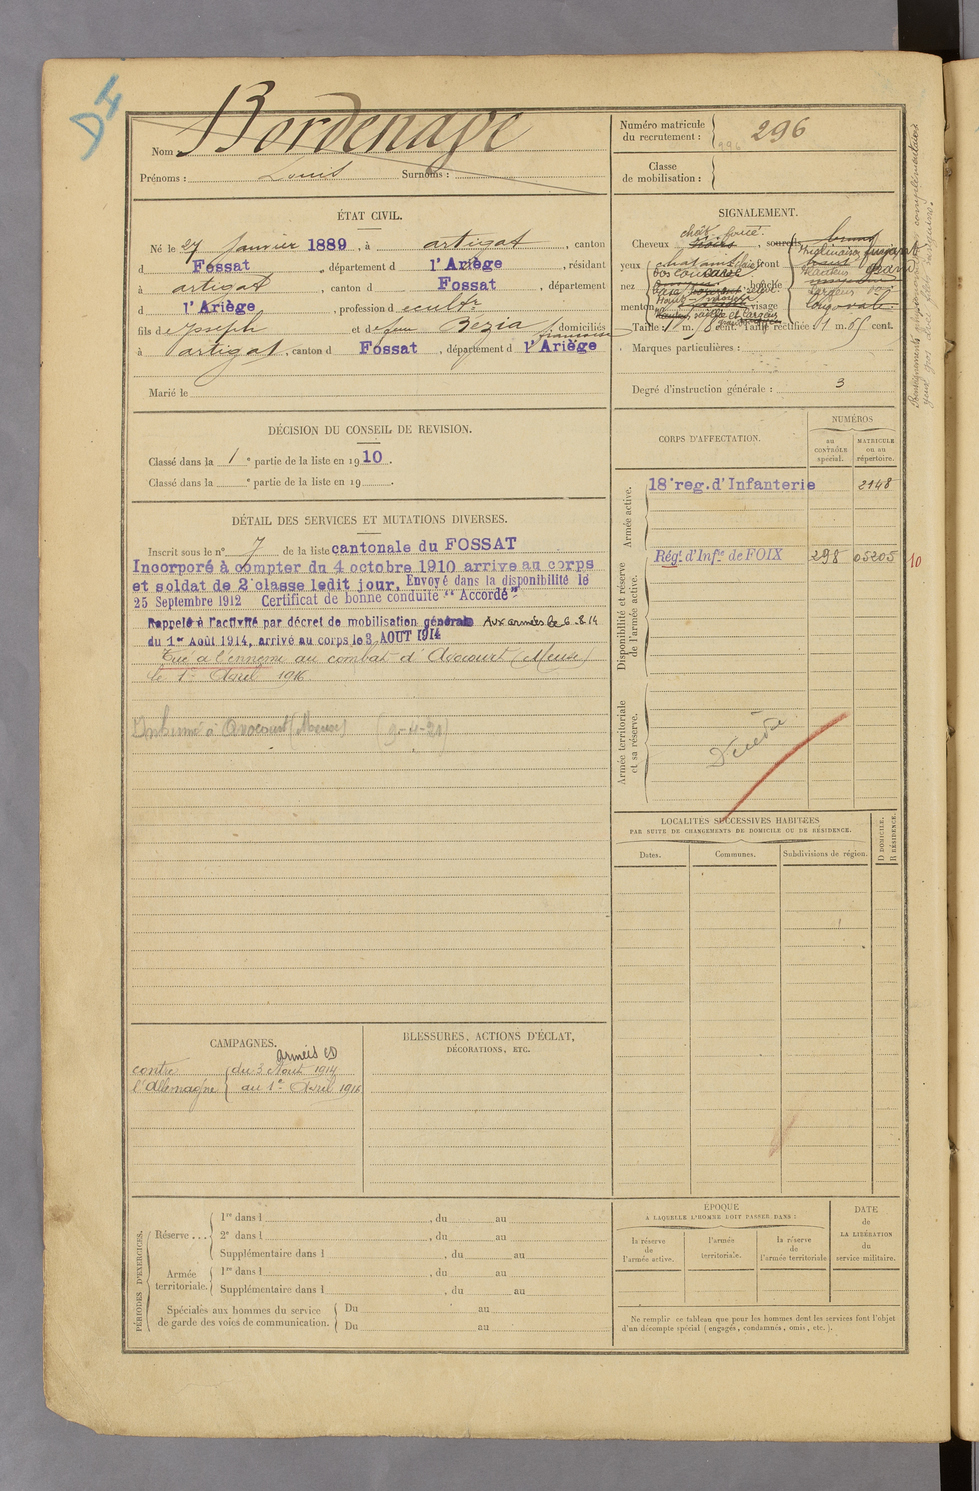 Nom Bordenave
Prénoms : Louis Surnoms :
Numéro matricule du recrutement : 296
Classe de mobilisation :
ÉTAT CIVIL.
Né le 27 Janvier 1889, à artigat, canton
d Fossat, département d l'Ariège, résidant
à artigat, canton d Fossat, département
d l'Ariège, profession d cultr
fils de Joseph et de feue Bézia domiciliés
à artigat, canton d Fossat, département d l'Ariège
Marié le
SIGNALEMENT.
Cheveux chât. foncé sourcils
yeux front
nez bouche
menton visage
Taille : 1 m. cent. Taille rectifiée 1 m. 65 cent.
Marques particulières :
Degré d'instruction générale : 3
DÉCISION DU CONSEIL DE REVISION.
Classé dans la 1e partie de la liste en 1910.
Classé dans la e partie de la liste en 19 .
DÉTAIL DES SERVICES ET MUTATIONS DIVERSES.
Inscrit sous le n° 7 de la liste cantonale du FOSSAT
Incorporé à compter du 4 octobre 1910 arrive au corps
et soldat de 2e classe ledit jour, Envoyé dans la disponibilité le
25 Septembre 1912 Certificat de bonne conduite "Accordé"
Rappelé à l'activité par décret de mobilisation générale Aux armées le 6.8.14
du 1er Août 1914, arrivé au corps le 3 AOUT 1914
Tué à l'ennemi au combat d'Avocourt (Meuse)
le 1er Avril 1916
Inhumé à Avocourt (Meuse)
CORPS D'AFFECTATION.
NUMÉROS
au CONTRÔLE spécial.
MATRICULE ou au répertoire.
Armée active.
18e reg. d'Infanterie 2148
Disponibilité et réserve de l'armée active.
Régt d'Infie de FOIX 298 05205 10
Armée territoriale et sa réserve.
Décédé
LOCALITÉS SUCCESSIVES HABITÉES
PAR SUITE DE CHANGEMENTS DE DOMICILE OU DE RÉSIDENCE.
Dates.
Communes.
Subdivisions de région.
D DOMICILE.
R RÉSIDENCE.
CAMPAGNES.
armées
contre du 3 Août 1914
l'Allemagne au 1er Avril 1916
BLESSURES, ACTIONS D'ÉCLAT,
DÉCORATIONS, ETC.
PÉRIODES D'EXERCICES.
Réserve ...
1re dans l , du au
2e dans l , du au
Supplémentaire dans l , du au
Armée territoriale.
1re dans l , du au
Supplémentaire dans l , du au
Spéciales aux hommes du service
de garde des voies de communication.
Du au
Du au
EPOQUE
A LAQUELLE L'HOMME DOIT PASSER DANS :
la réserve de l'armée active.
l'armée territoriale.
la réserve de l'armée territoriale
DATE
de
LA LIBÉRATION
du
service militaire.
Ne remplir ce tableau que pour les hommes dont les services font l'objet
d'un décompte spécial (engagés, condamnés, omis, etc.).